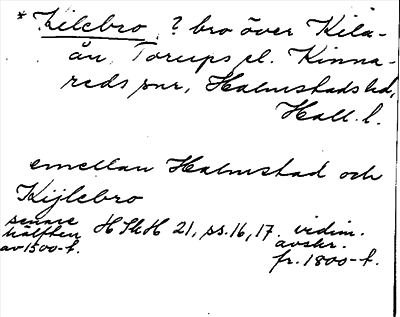 * Kilebro, ? bro över Kila-
ån, Torups el. Kinna-
reds snr, Halmstads hd,
Hall. l.
emellan Halmstad och
Kijlebro
senare
hälften
av 1500-t.
HSH 21, ss. 16, 17. vidim.
avskr.
fr. 1800-t.